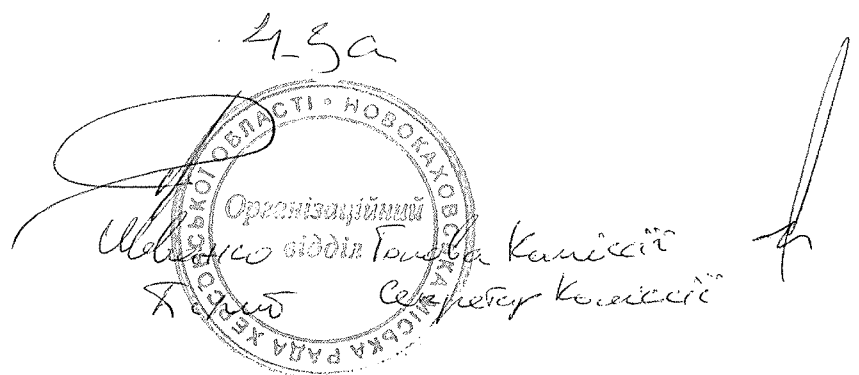 4-за
НОВОКАХОВСЬКА МІСЬКА РАДА ХЕРСОНСЬКОЇ ОБЛАСТІ •
Організаційний
відділ
Голова Комиссії
Секретар Комиссії